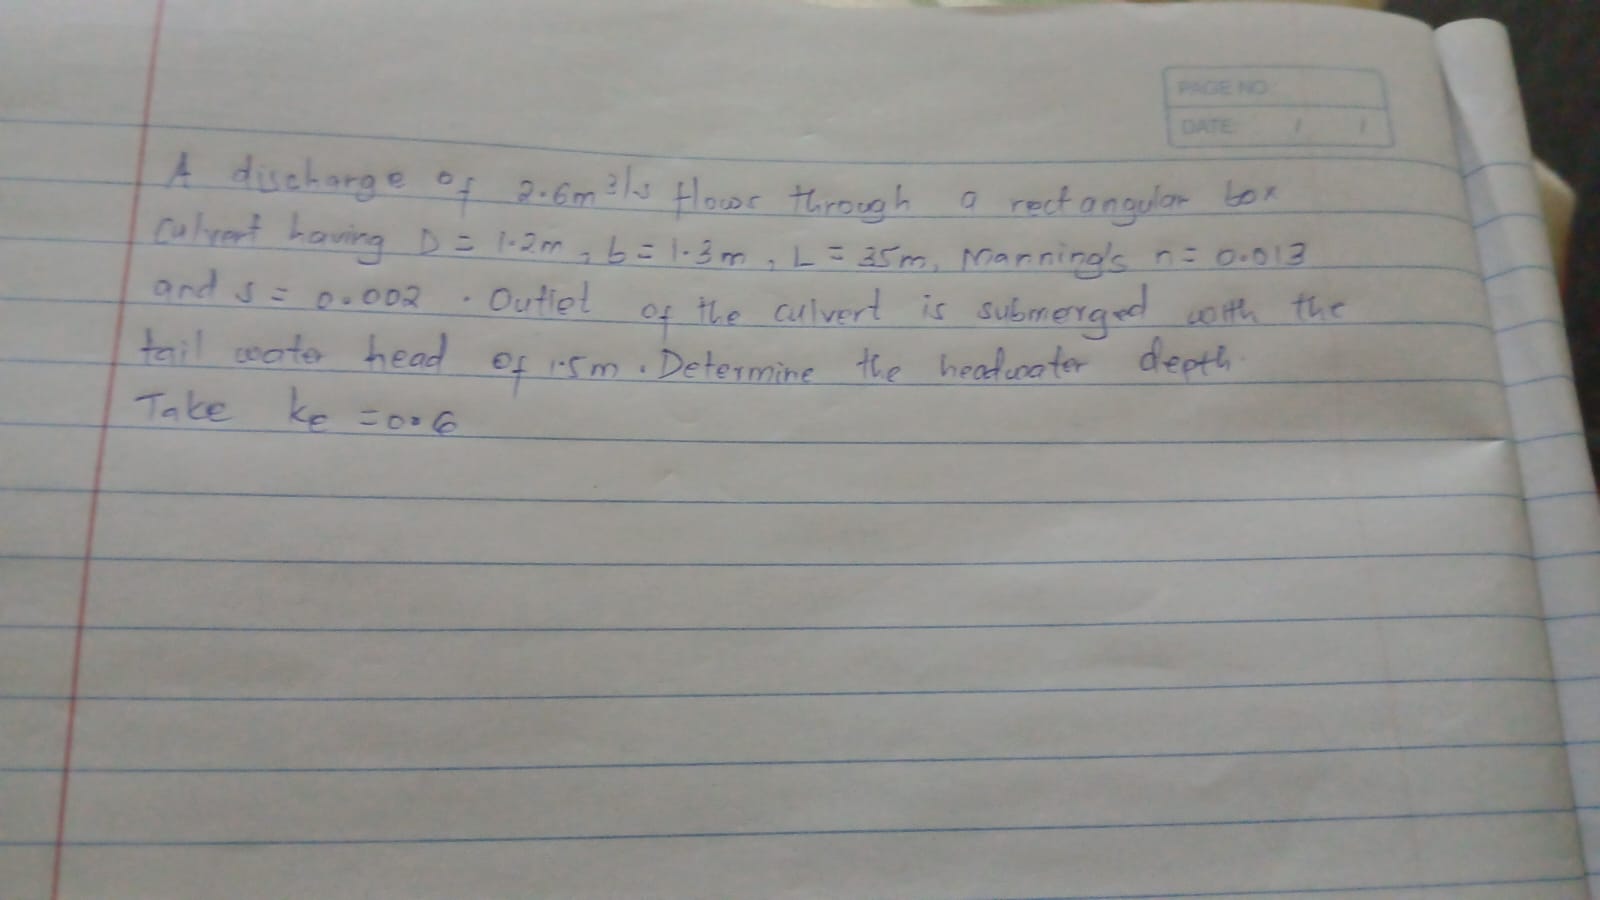 PAGE NO:
DATE: / /
A discharge of 2.6m³/s flows through a rectangular box
culvert having D = 1.2m, b = 1.3m, L = 35m, Manning's n = 0.013
and s = 0.002. Outlet of the culvert is submerged with the
tail water head of 1.5m. Determine the headwater depth.
Take ke = 0.6